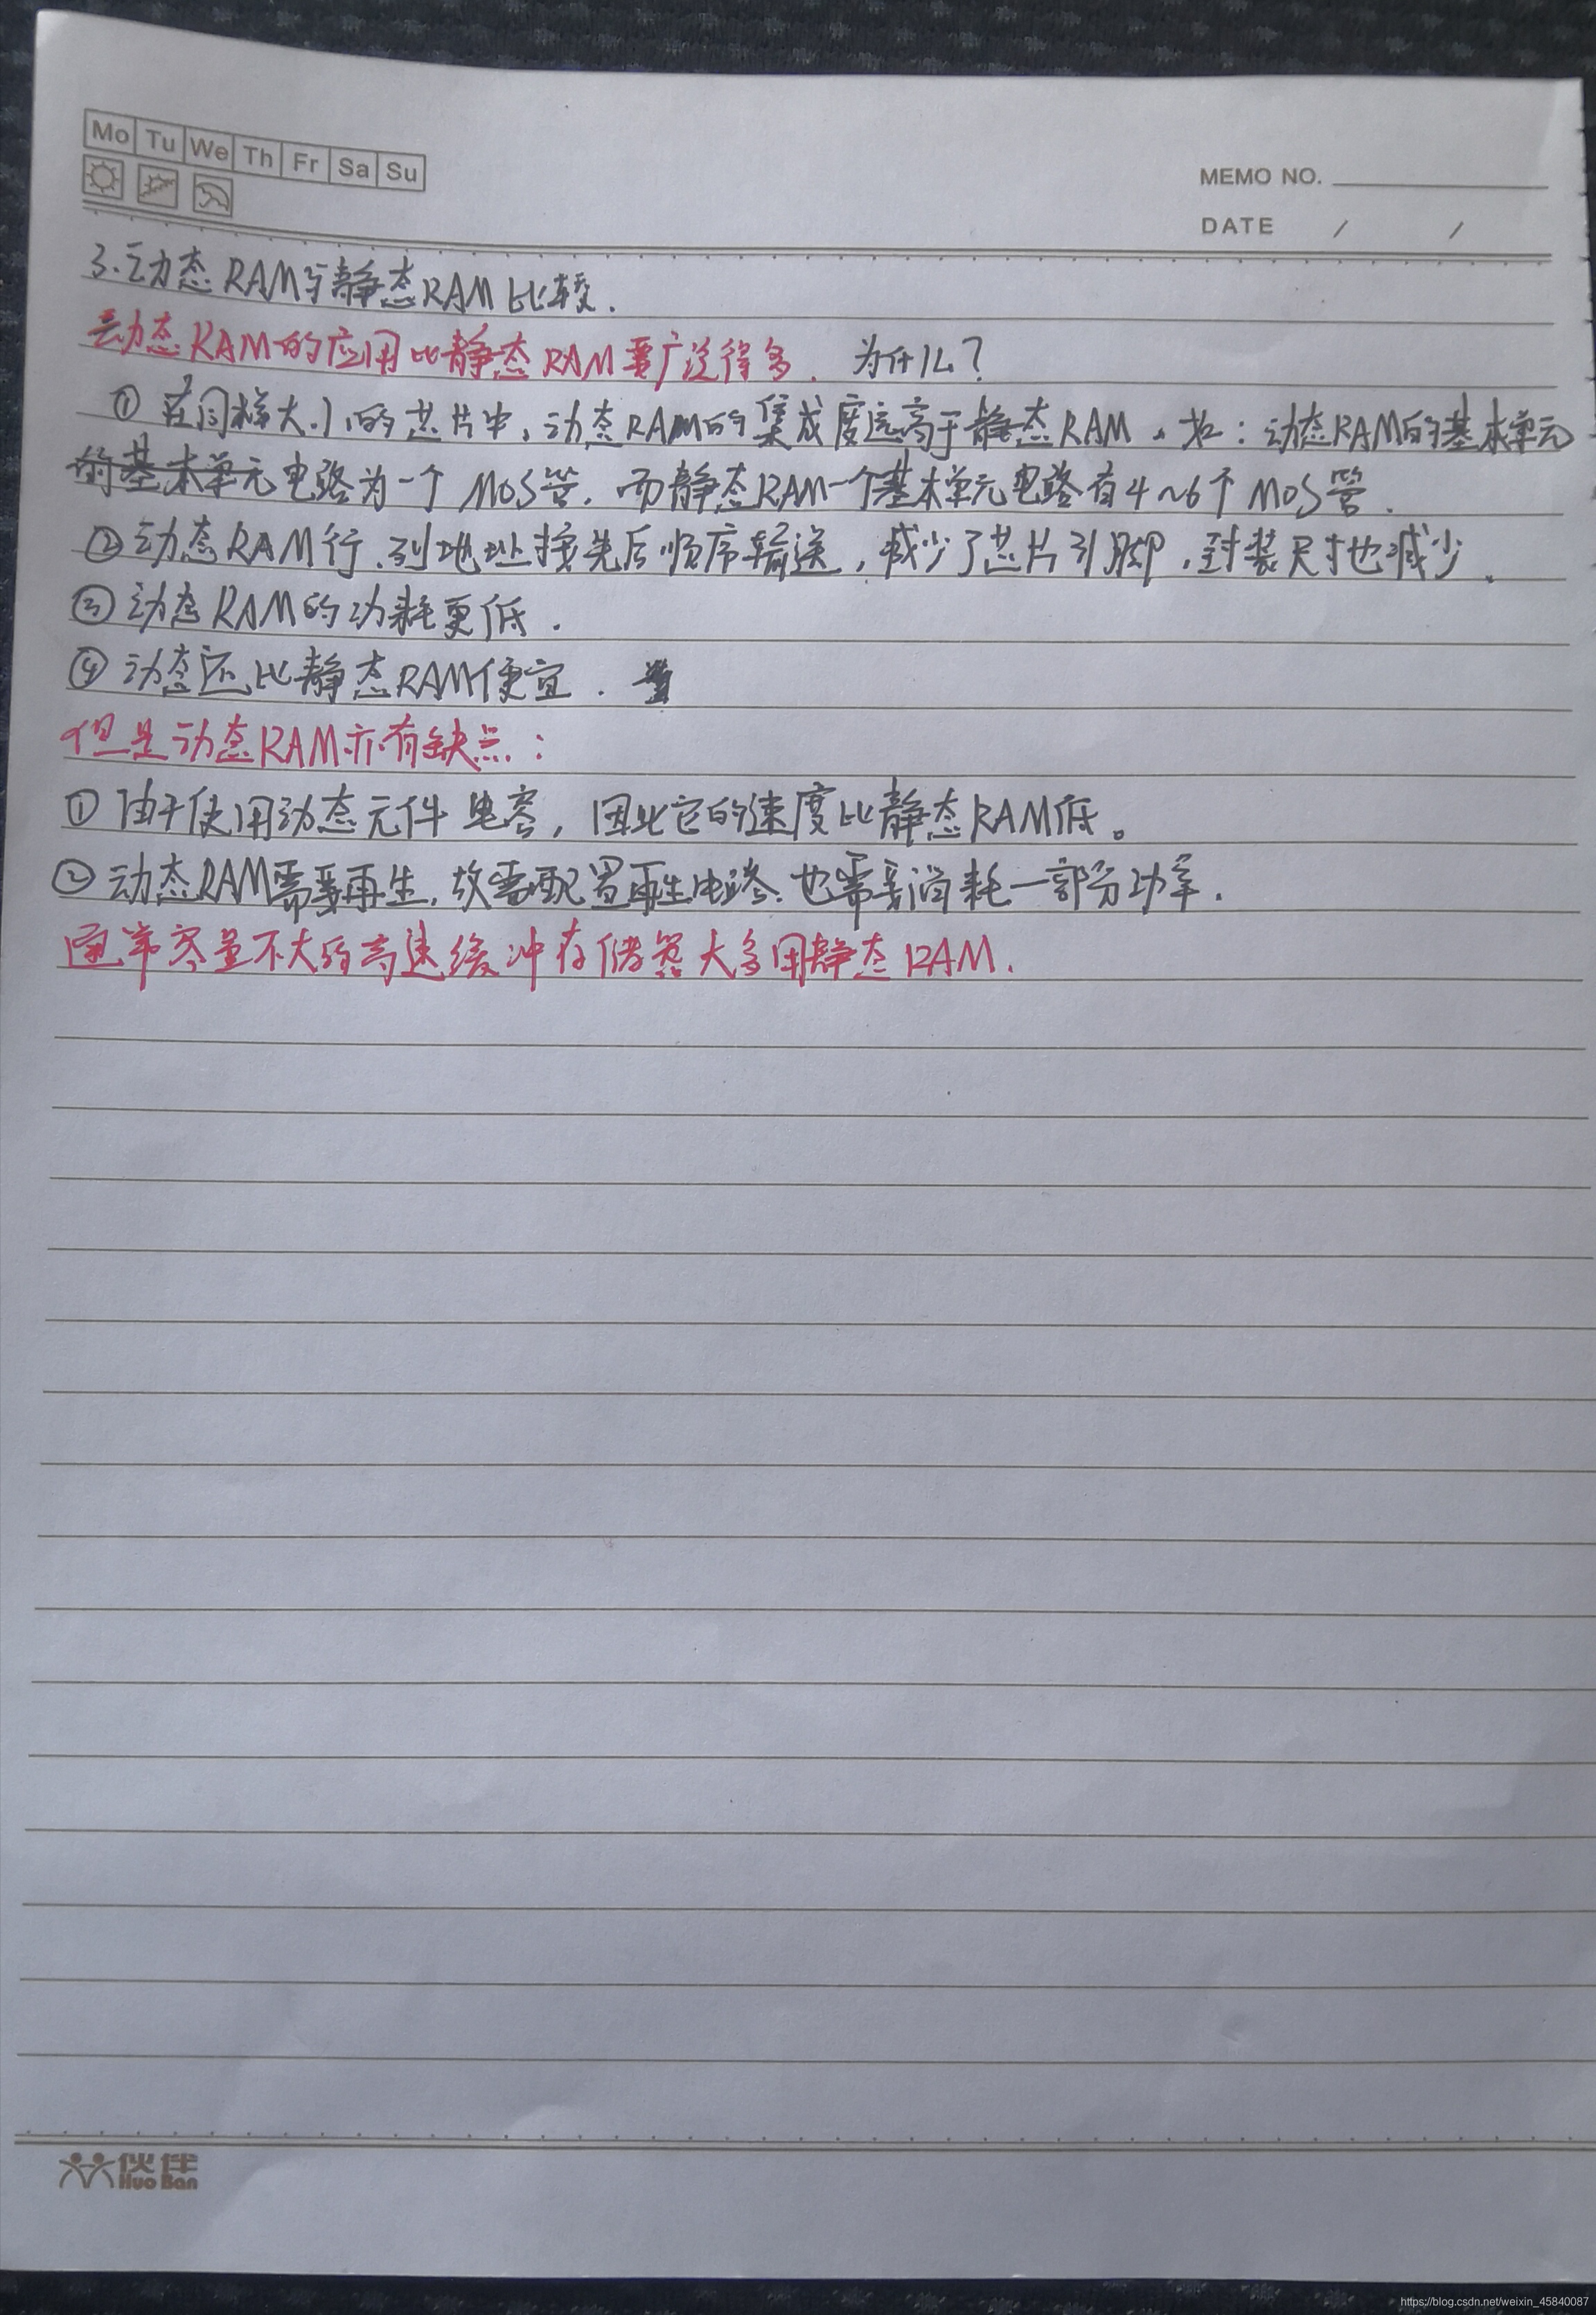 Mo Tu We Th Fr Sa Su
MEMO NO.
DATE / /
3.动态RAM与静态RAM比较.
动态RAM的应用比静态RAM要广泛得多. 为什么?
① 在同样大小的芯片中,动态RAM的集成度远高于静态RAM. 如:动态RAM的基本单元
的基本单元电路为一个MOS管,而静态RAM一个基本单元电路有4~6个MOS管.
②动态RAM行、列地址按先后顺序输送,减少了芯片引脚,封装尺寸也减少.
③动态RAM的功耗更低.
④动态还比静态RAM便宜.
但是动态RAM亦有缺点:
①由于使用动态元件 电容,因此它的速度比静态RAM低。
②动态RAM需要再生,故需配置再生电路.也需要消耗一部分功率.
通常容量不大的高速缓冲存储器大多用静态RAM.
伙伴
Huo Ban
https://blog.csdn.net/weixin_45840087